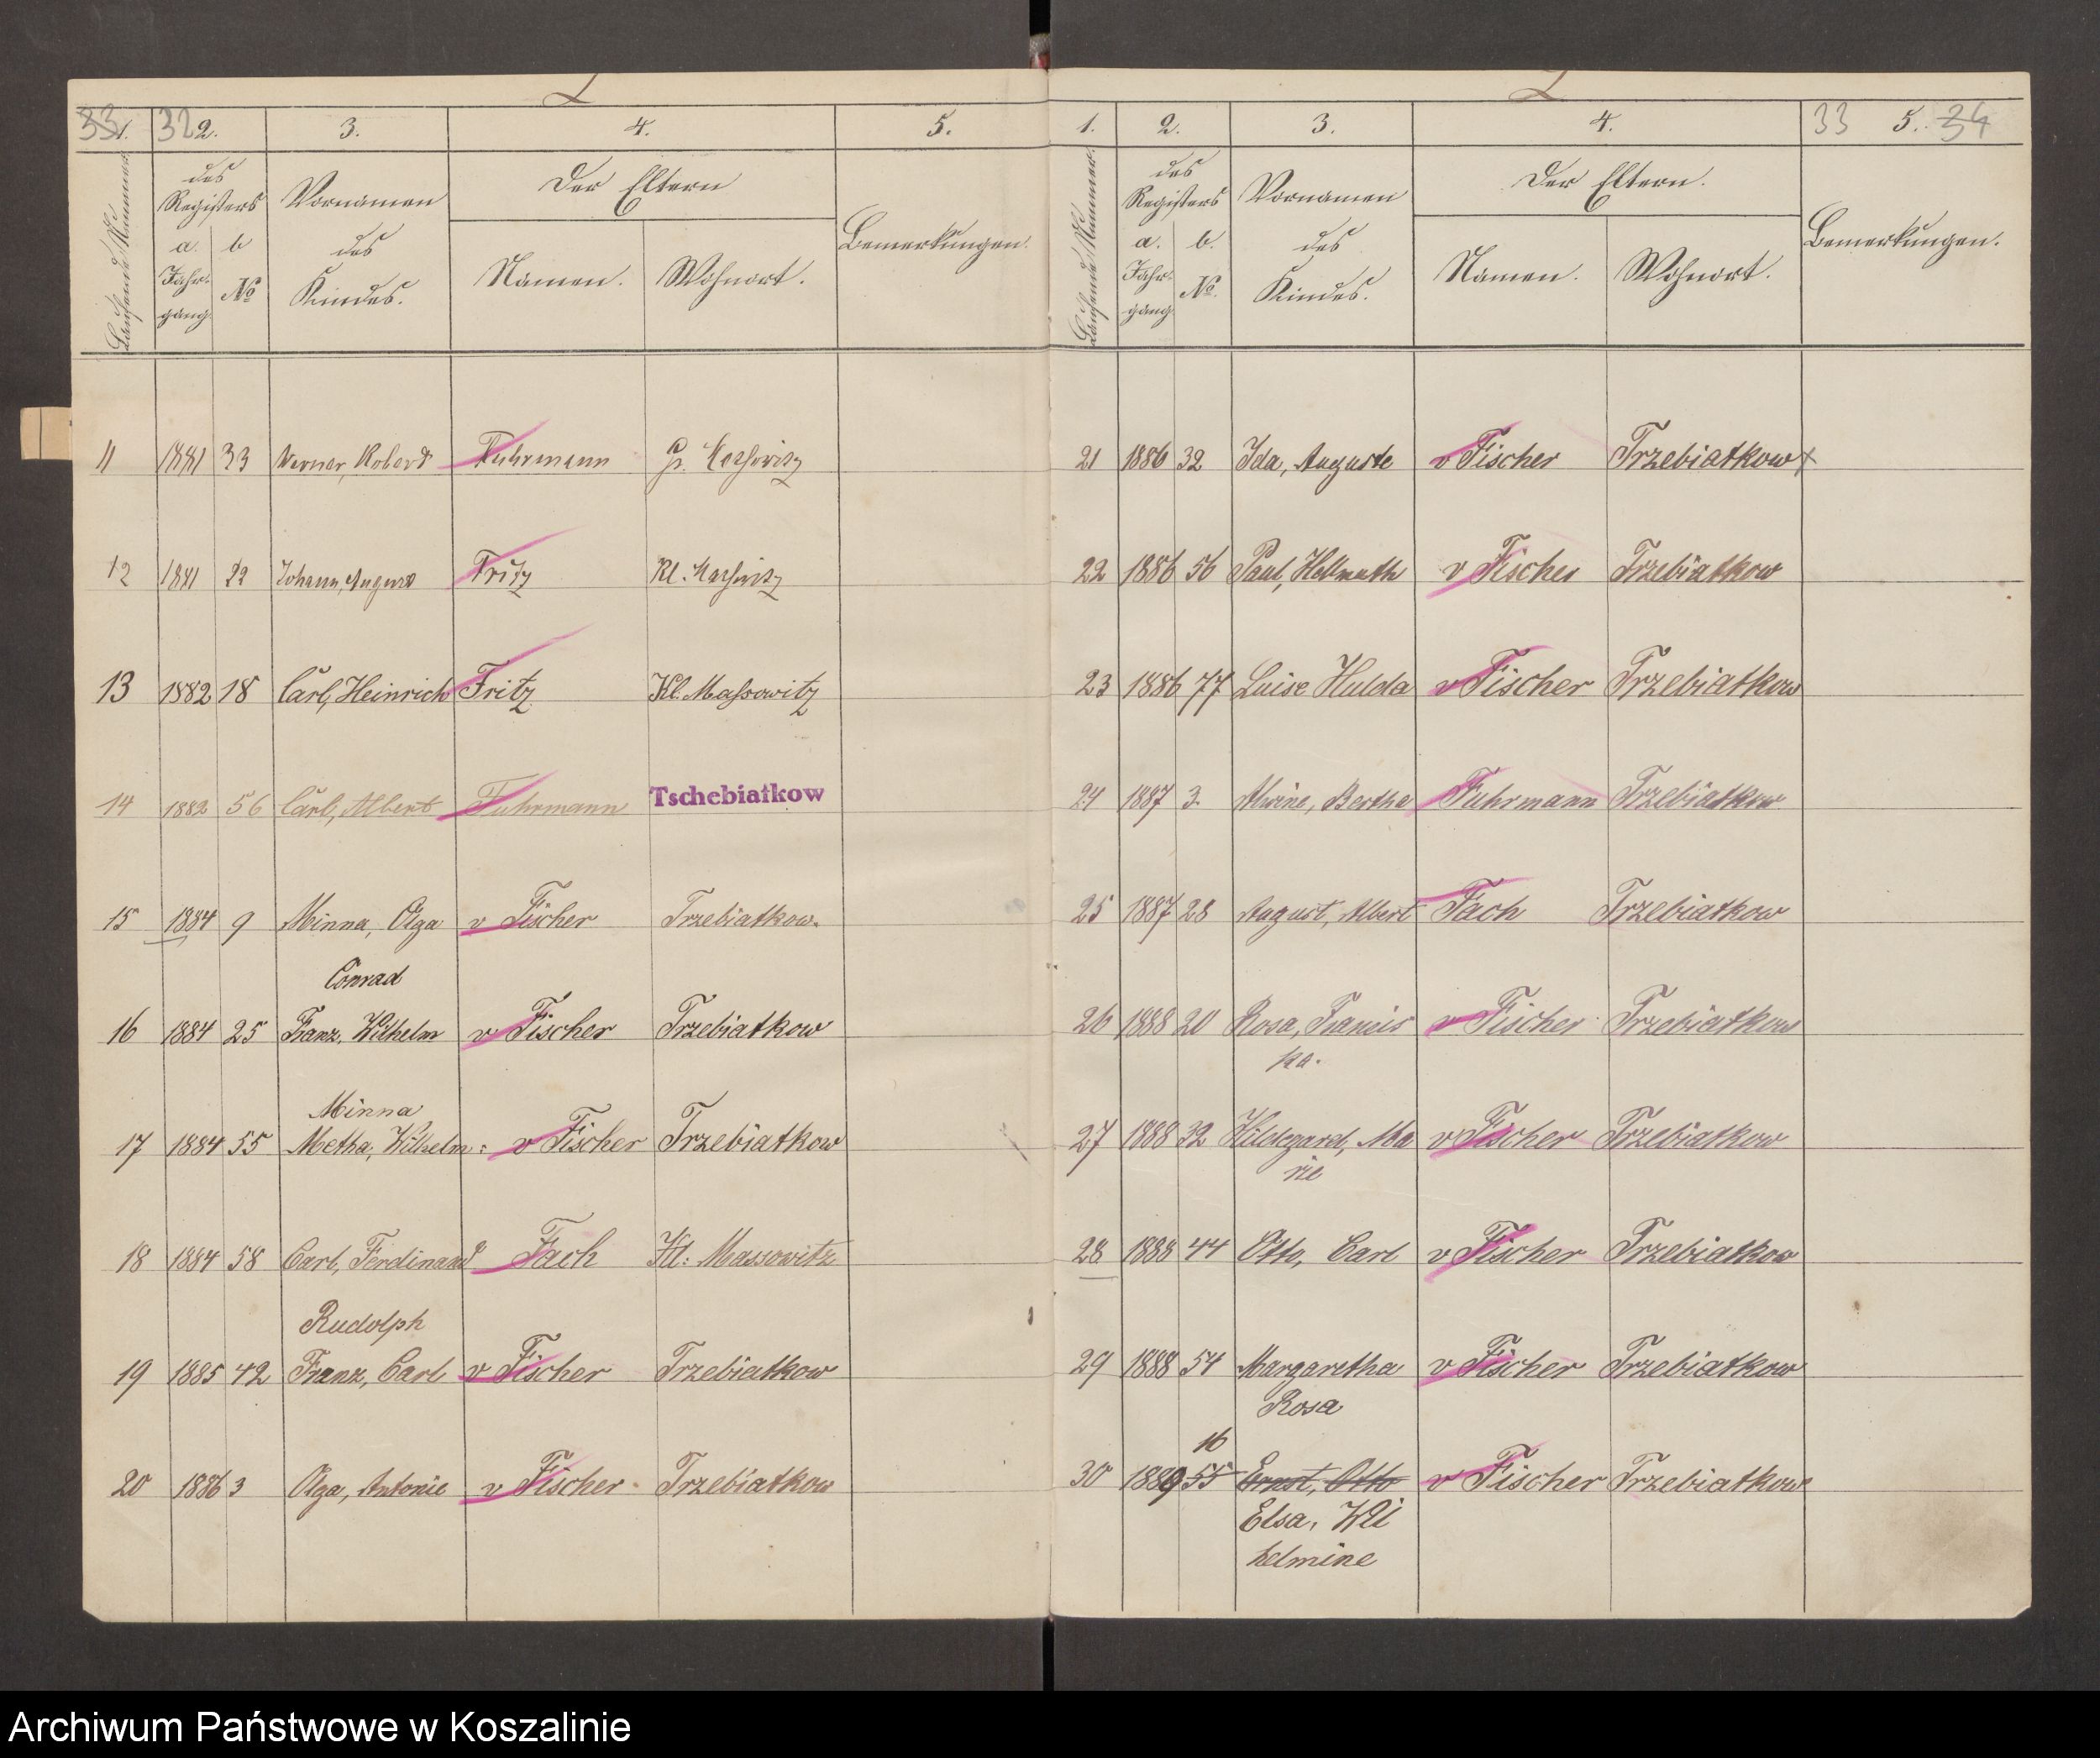 33 1. 32 2. 3. 4. 5.
Laufende Nummer.
des
Registers
a. b
Jahr-
gang
№
Vornamen
des
Kindes.
Der Eltern
Namen. Wohnort.
Bemerkungen.
11 1881 33 Werner, Robert Fuhrmann Gr. Massowitz
12 1881 22 Johann, August Fritz Kl. Massowitz
13 1882 18 Carl, Heinrich Fritz Kl. Massowitz
14 1882 56 Carl, Albert Fuhrmann Tschebiatkow
15 1884 9 Minna, Olga v Fischer Trzebiatkow.
Conrad
16 1884 25 Franz, Wilhelm v Fischer Trzebiatkow
Minna
17 1884 55 Metha, Wilhelm: v Fischer Trzebiatkow
18 1884 58 Carl, Ferdinand Fach Kl: Massowitz
Rudolph
19 1885 42 Franz, Carl v Fischer Trzebiatkow
20 1886 3 Olga, Antonie v Fischer Trzebiatkow
1. 2. 3. 4. 33 5. 34
Laufende Nummer.
des
Registers
a. b.
Jahr-
gang
№.
Vornamen
des
Kindes.
Der Eltern.
Namen. Wohnort.
Bemerkungen.
21 1886 32 Ida, Auguste v Fischer Trzebiatkow x
22 1886 56 Paul, Hellmuth v Fischer Trzebiatkow
23 1886 77 Luise Hulda v Fischer Trzebiatkow
24 1887 3. Alwine, Bertha Fuhrmann Trzebiatkow
25 1887 28 August, Albert Fach Trzebiatkow
26 1888 20 Rosa, Francis v Fischer Trzebiatkow
ka.
27 1888 32 Hildegard, Ma v Fischer Trzebiatkow
rie
28 1888 44 Otto, Carl v Fischer Trzebiatkow
29 1888 54 Margaretha v Fischer Trzebiatkow
Rosa
16
30 1889 55 Ernst, Otto v Fischer Trzebiatkow
Elsa, Wil
helmine
Archiwum Państwowe w Koszalinie